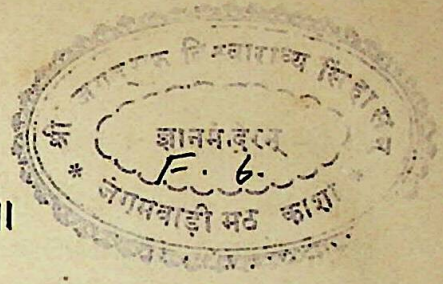 श्री जगद्गुरु विश्वाराध्य सिंहासन
ज्ञानमंदिरम्
F. 6.
* जंगमवाड़ी मठ काशी *
॥